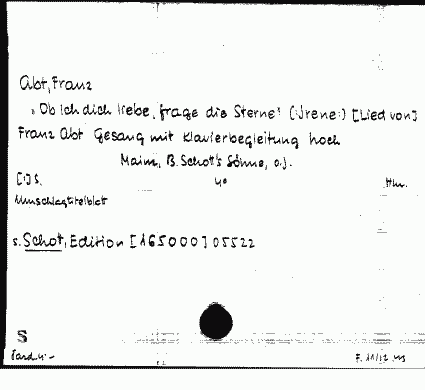 Abt, Franz
"Ob ich dich liebe, frage die Sterne" (:Irene:) [Lied von]
Franz Abt Gesang mit Klavierbegleitung hoch
Mainz, B. Schott's Söhne, o.J.
[:] S. 4° Hlw.
Umschlagtitelblatt
s. Schott, Edition [165000] 05522
S